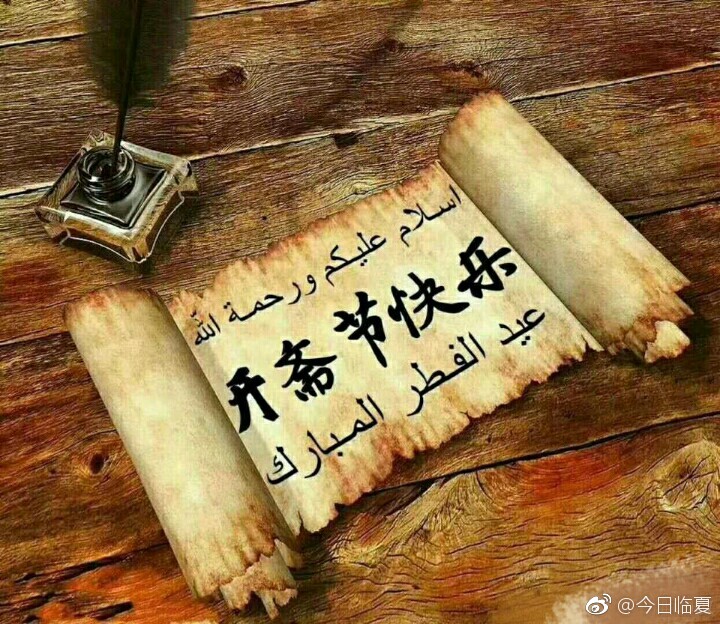 اسلام عليكم ورحمة الله
开斋节快乐
عيد الفطر المبارك
@今日临夏